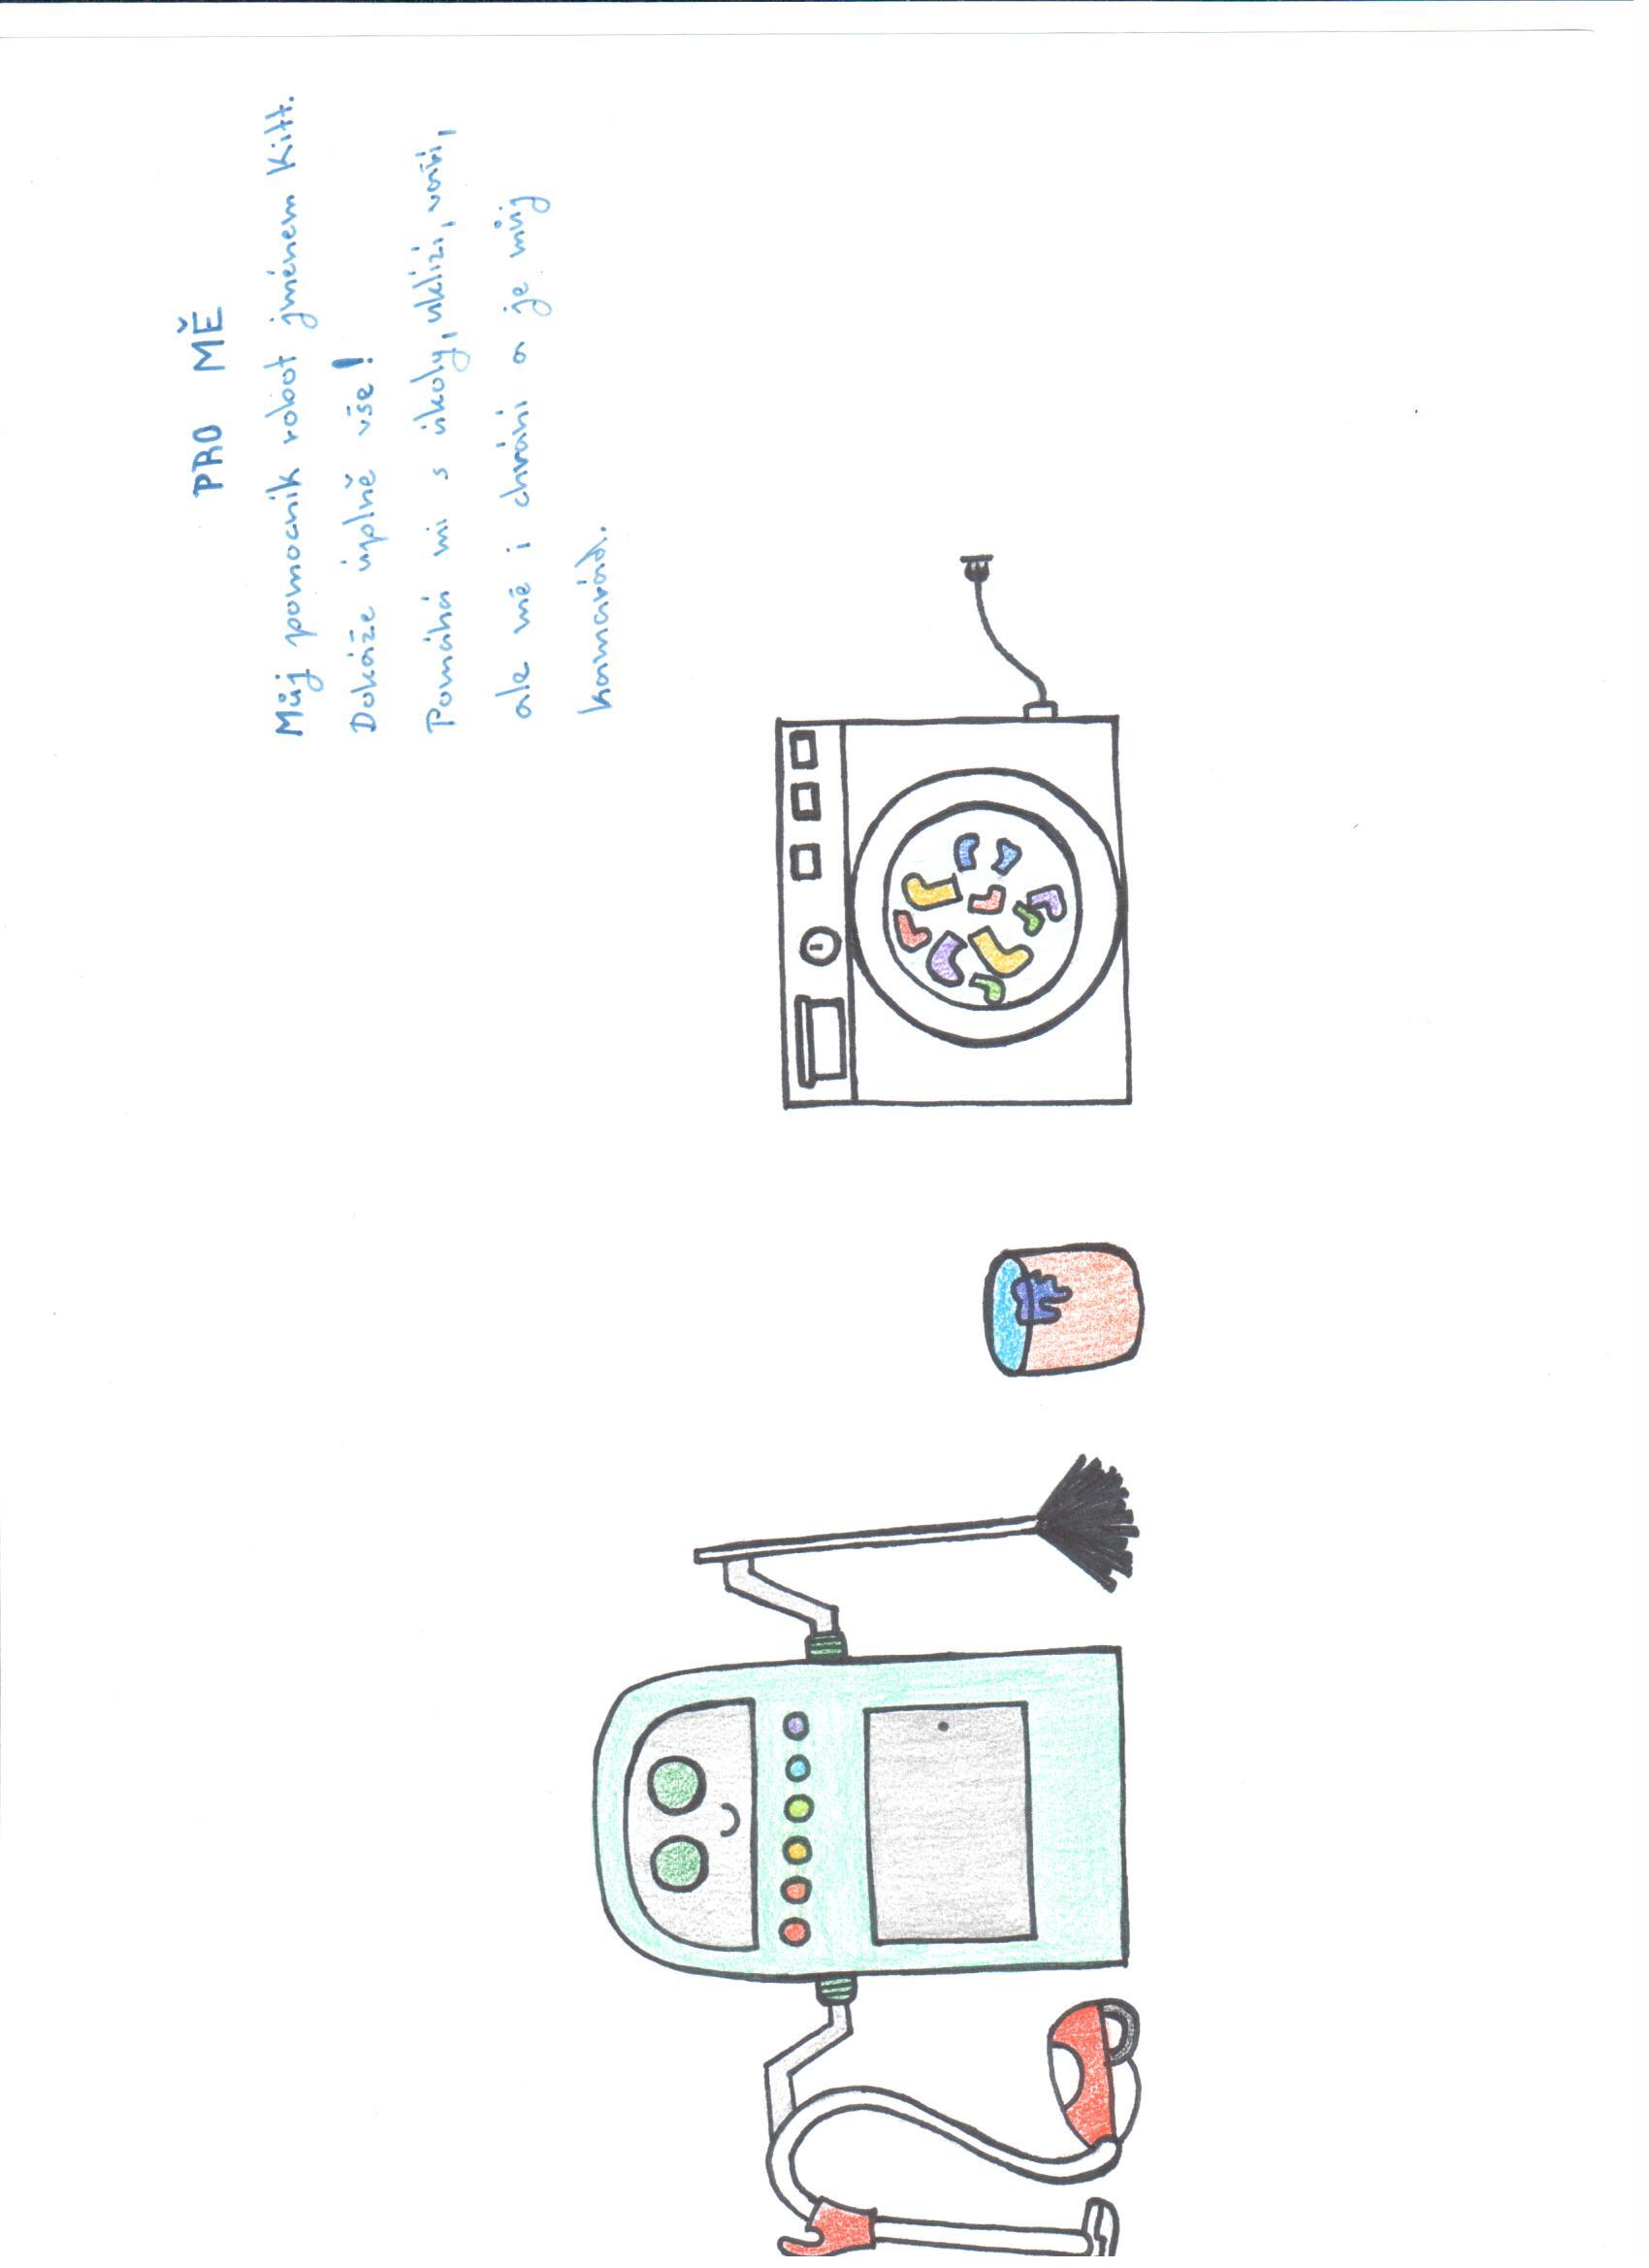 PRO MĚ
Můj pomocník robot jménem Kitt.
Dokáže úplně vše!
Pomáhá mi s úkoly, uklízí, vaří,
ale mě i chrání a je můj
kamarád.